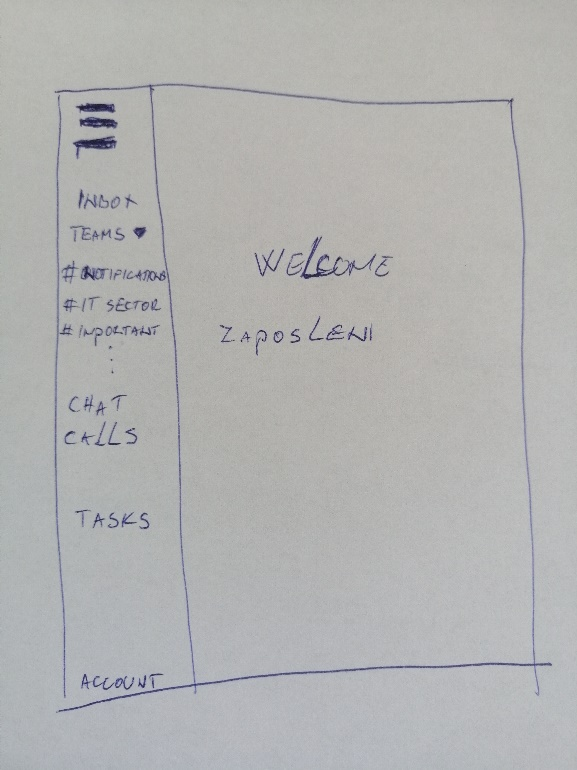 INBOX
TEAMS
# NOTIFICATIONS
# IT SECTOR
# INPORTANT
CHAT
CALLS
TASKS
ACCOUNT
WELCOME
ZAPOSLENI